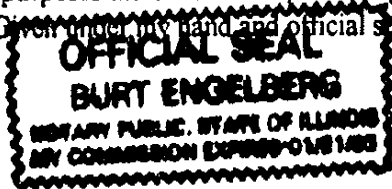 Given under my hand and official s
OFFICIAL SEAL
BURT ENGELBERG
NOTARY PUBLIC, STATE OF ILLINOIS
MY COMMISSION EXPIRES